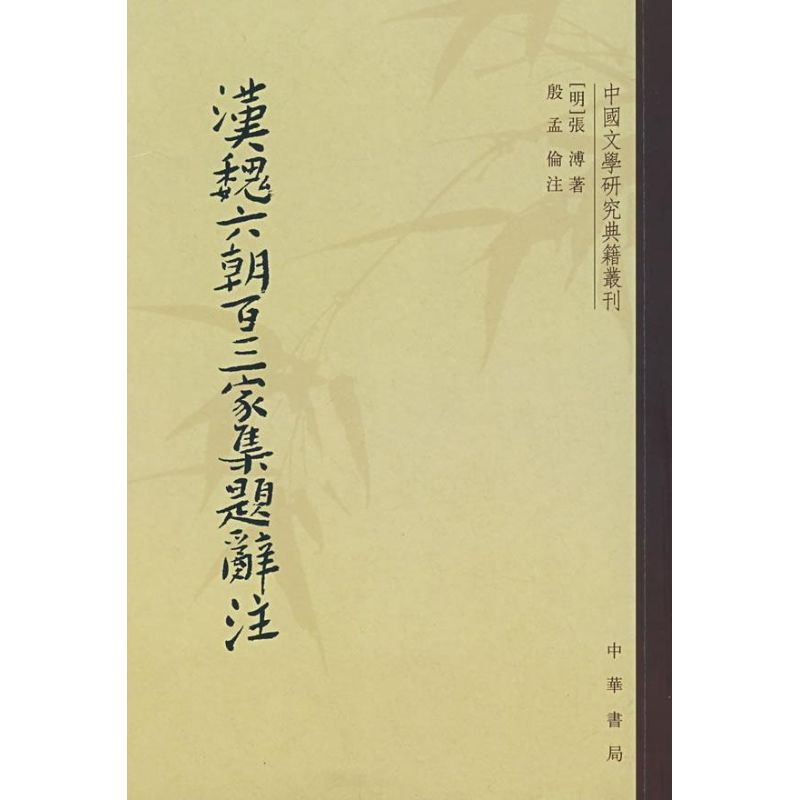 中國文學研究典籍叢刊
[明]張溥著
殷孟倫注
漢魏六朝百三家集題辭注
中華書局